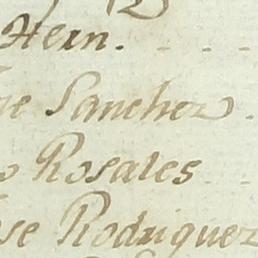 Hern.
Sanchez
Rosales
se Rodriguez